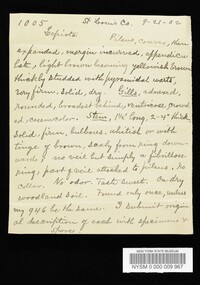 1005 St Louis Co. 9-21-02
Lepiota
Pileus, convex, then
expanded, margin incurved, appendicu
late, light brown becoming yellowish brown
thickly studded with pyramidal warts,
very firm, solid, dry. Gills, adnexed,
rounded, broadest behind, ventricose crowd
ed, cream color. Stem, 1¼ long, 2-4" thick
Solid, firm, bulbous, whitish or with
tinge of brown, scaly from ring down-
wards, no veil but simply a fibrillose
ring, part of veil attached to pileus, no
collar. No odor. Taste sweet. On dry
woodland soil. Found only once, unless
my 946 be the same. I submit origin
al description of each with specimens &
spores
NEW YORK STATE MUSEUM
NYSM 0 000 009 967